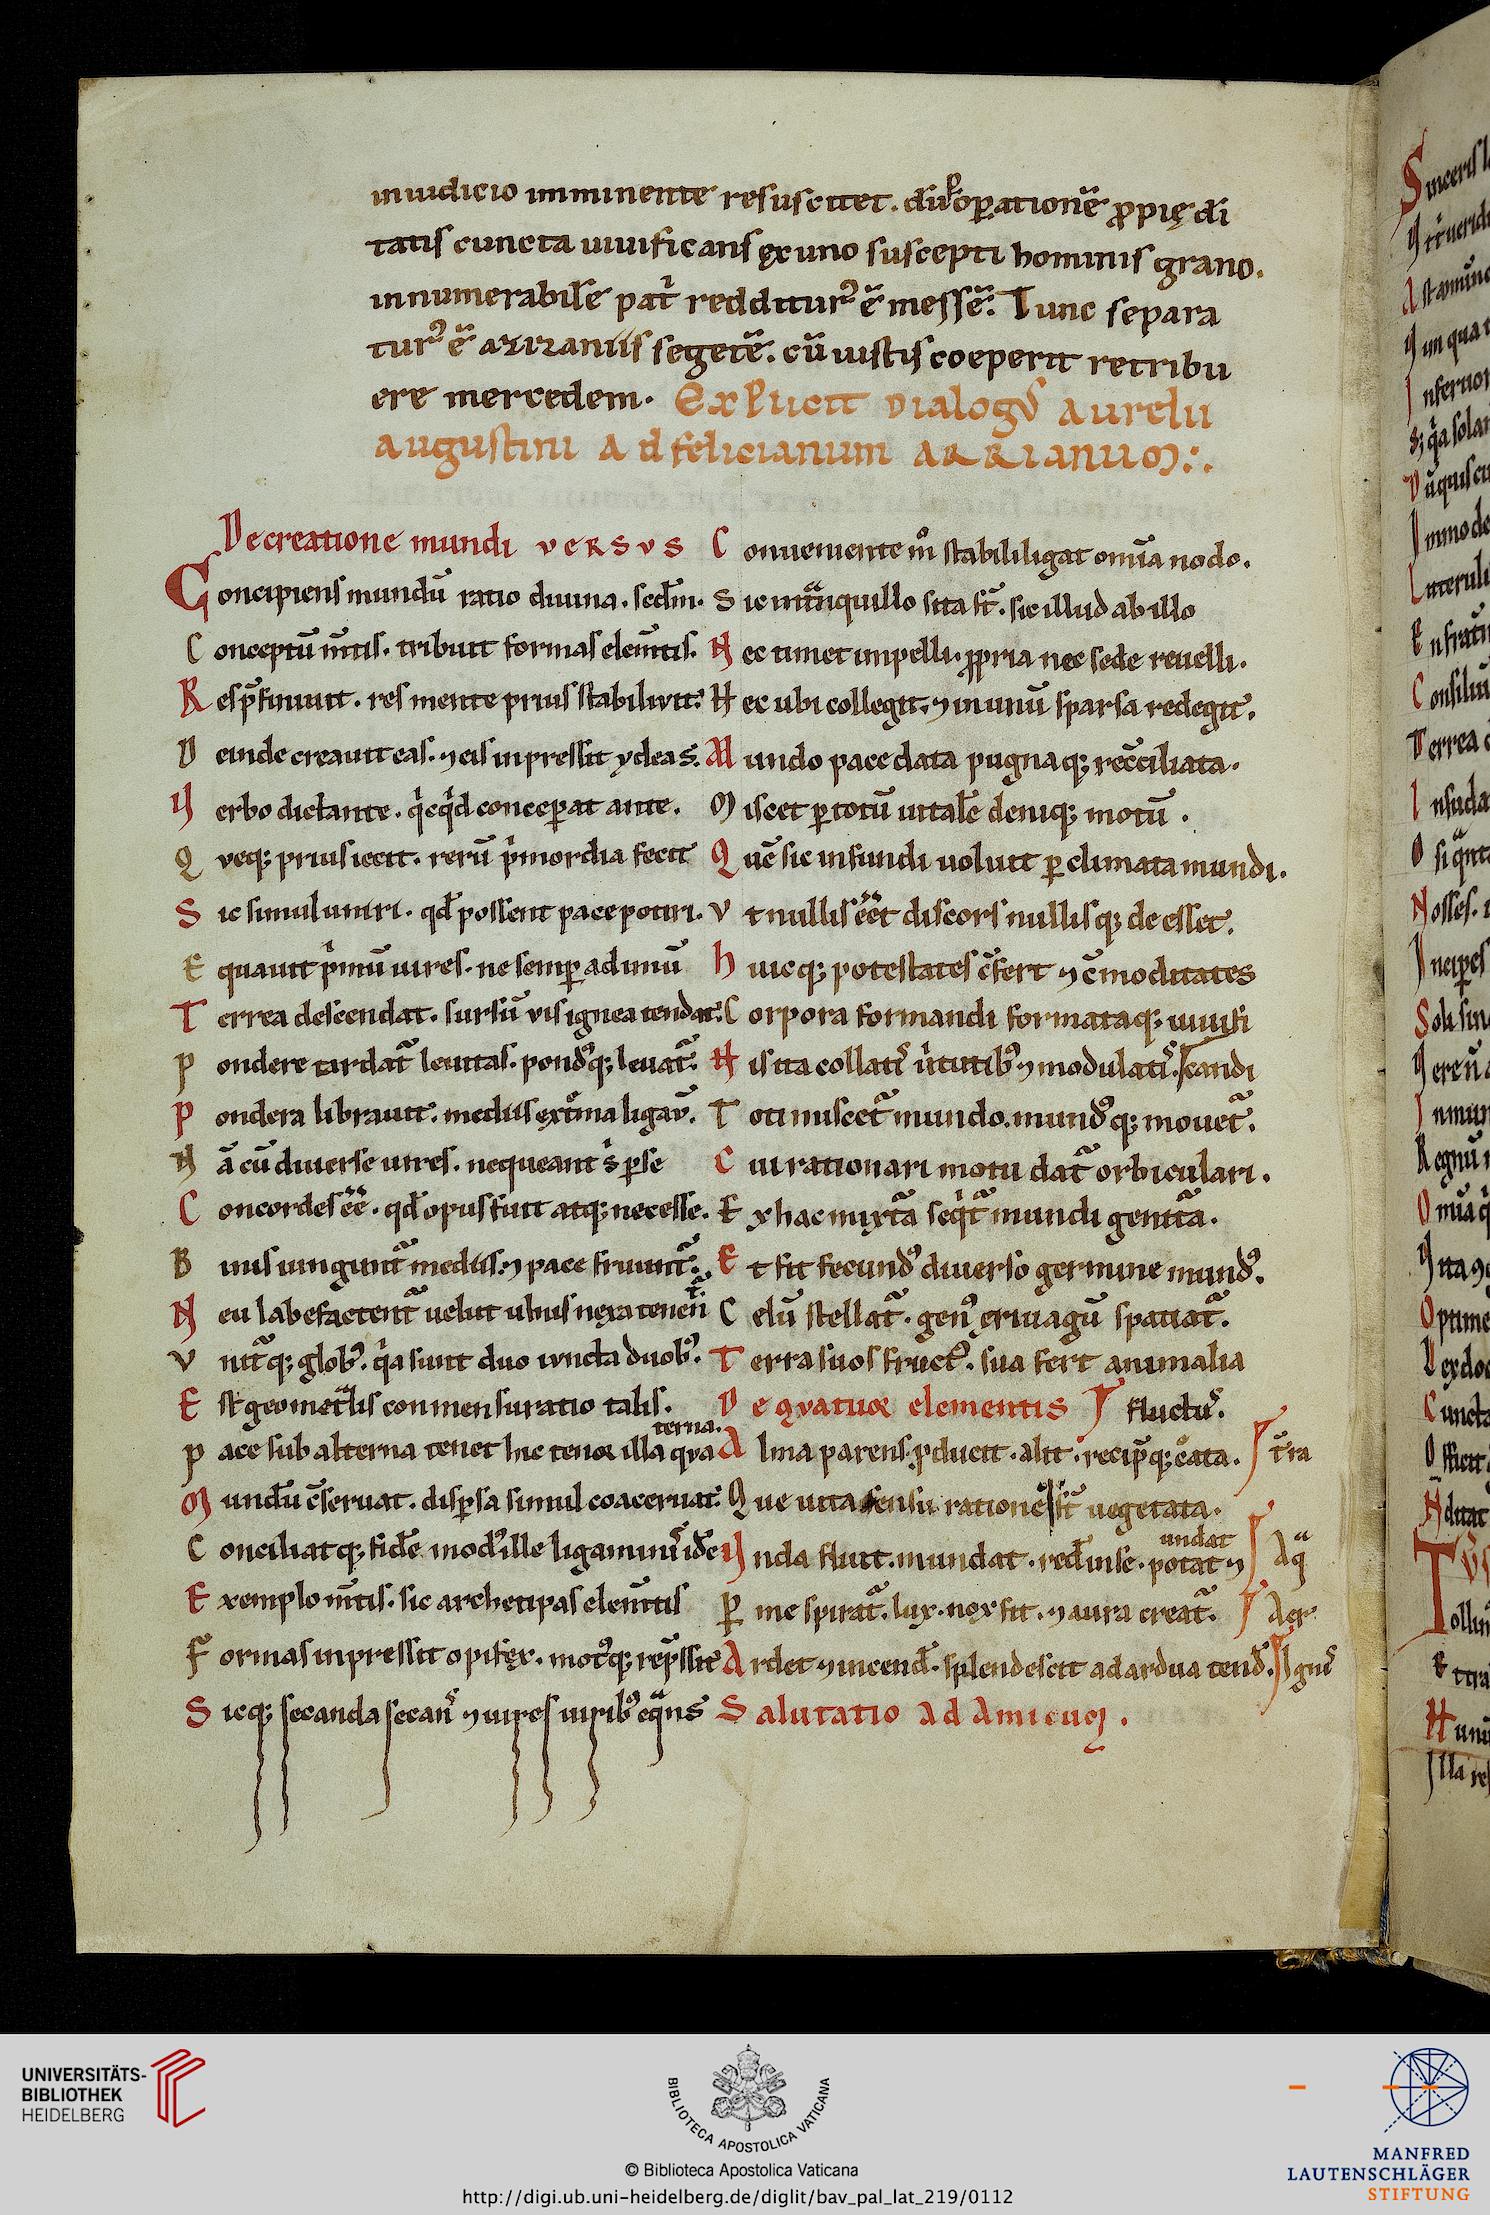 iniudicio imminente resuscitet. diuͥ oꝑationē ꝓpię di
tatis cuncta uiuificans ęx uno suscepti hominis grano.
innumerabilē pat̄ redditurꝰ ē messē. Tunc separa
turꝰ ē azizaniis segetē. cū iustis coeperit retribu
ere mercedem. Explicit Dialogꝰ Aurelii
augustini Ad felicianum ARRIANUM:.
De creatione mundi VERSVS
Concipiens mundū ratio diuina. secd̄m.
Conceptū m̄tis. tribuit formas elem̄tis.
Resp̄finiuit. res mente prius stabiliuit.
Deinde creauit eas. ⁊ eis inpressit ydeas.
Verbo dictante. qͥcqͥd conceꝑat ante.
Qveq; prius iecit. rerū pͥmordia fecit
Sic simul uniri. qd̄ possent pace potiri.
Equauit pͥmū uires. ne semꝑ ad imū
Terrea descendat. sursū vis ignea tendat.
Pondere tardat᷑ leuitas. pondꝰq; leuat᷑.
Pondera librauit. mediis ext̄ma ligau̅.
Nā cū diuerse uires. nequeant s̄ ꝑ se
Concordes ēē. qd̄ opus fuit atq; necesse.
Binis iungunt᷑ mediis. ⁊ pace fruunt᷑.
Neu labefactent᷑ uelut ulnis nexa tenent᷑
Vnit᷑q; globꝰ. qͥa sunt duo iuncta duobꝰ.
Est geomet̄lis conmensuratio talis.
Pace sub alterna tenet hec tenor illa qua terna.
Mundū c̄seruat. disꝑsa simul coaceruat.
Conciliatq; fidē modꝰ ille ligaminis idē
Exemplo m̄tis. sic archetipas elem̄tis
Formas inpressit opifęx. motꝰq; rep̄ssit
Sicq; secanda secans ⁊ uires uiribꝰ eq̄ns
Conueniente m̊ stabili ligat omīa nodo.
Sic int̄nquillo sita st̄. sic illud ab illo
Nec timet impelli. ꝓpria nec sede reuelli.
Hec ubi collegit. ⁊ in unū sparsa redegit.
Mundo pace data pugnaq; rec̄ciliata.
Miscet ꝑ totū uitalē deniq; motū.
Quē sic infundi uoluit ꝑ climata mundi.
Vt nullis ēēt discors nullisq; deesset.
Huicq; potestates c̄fert ⁊ c̄moditates
Corpora formandi formataq; uiuifi
His ita collatis uͥtutibꝰ ⁊ modulatis. candi
Toti miscet᷑ mundo. mundꝰq; mouet᷑.
Cui rationari motu dat᷑ orbiculari.
Ex hac mixt᷑a seqͥt᷑ mundi genit᷑a.
Et fit fecundꝰ diuerso germine mundꝰ.
Celū stellat᷑. genꝰ ęriuagū spatiat᷑.
Terra suos fructꝰ. sua fert animalia
De qvatuor elementis fluctus.
Alma parens. ꝓducit. alit. recip̄q; c̄ata. T̄ra
Que uita sensu ratione st̄ uegetata.
Vnda fluit. mundat. red̄ inse. potat ⁊ undat Aqͣ
Per me spirat᷑. lux. nox fit. ⁊ aura creat᷑. Aer
Ardet ⁊ incend̄. splendescit ad ardua tend̄. Ignis
Salutatio Ad Amicum.
UNIVERSITÄTS-
BIBLIOTHEK
HEIDELBERG
BIBLIOTECA APOSTOLICA VATICANA
© Biblioteca Apostolica Vaticana
http://digi.ub.uni-heidelberg.de/diglit/bav_pal_lat_219/0112
MANFRED
LAUTENSCHLÄGER
STIFTUNG